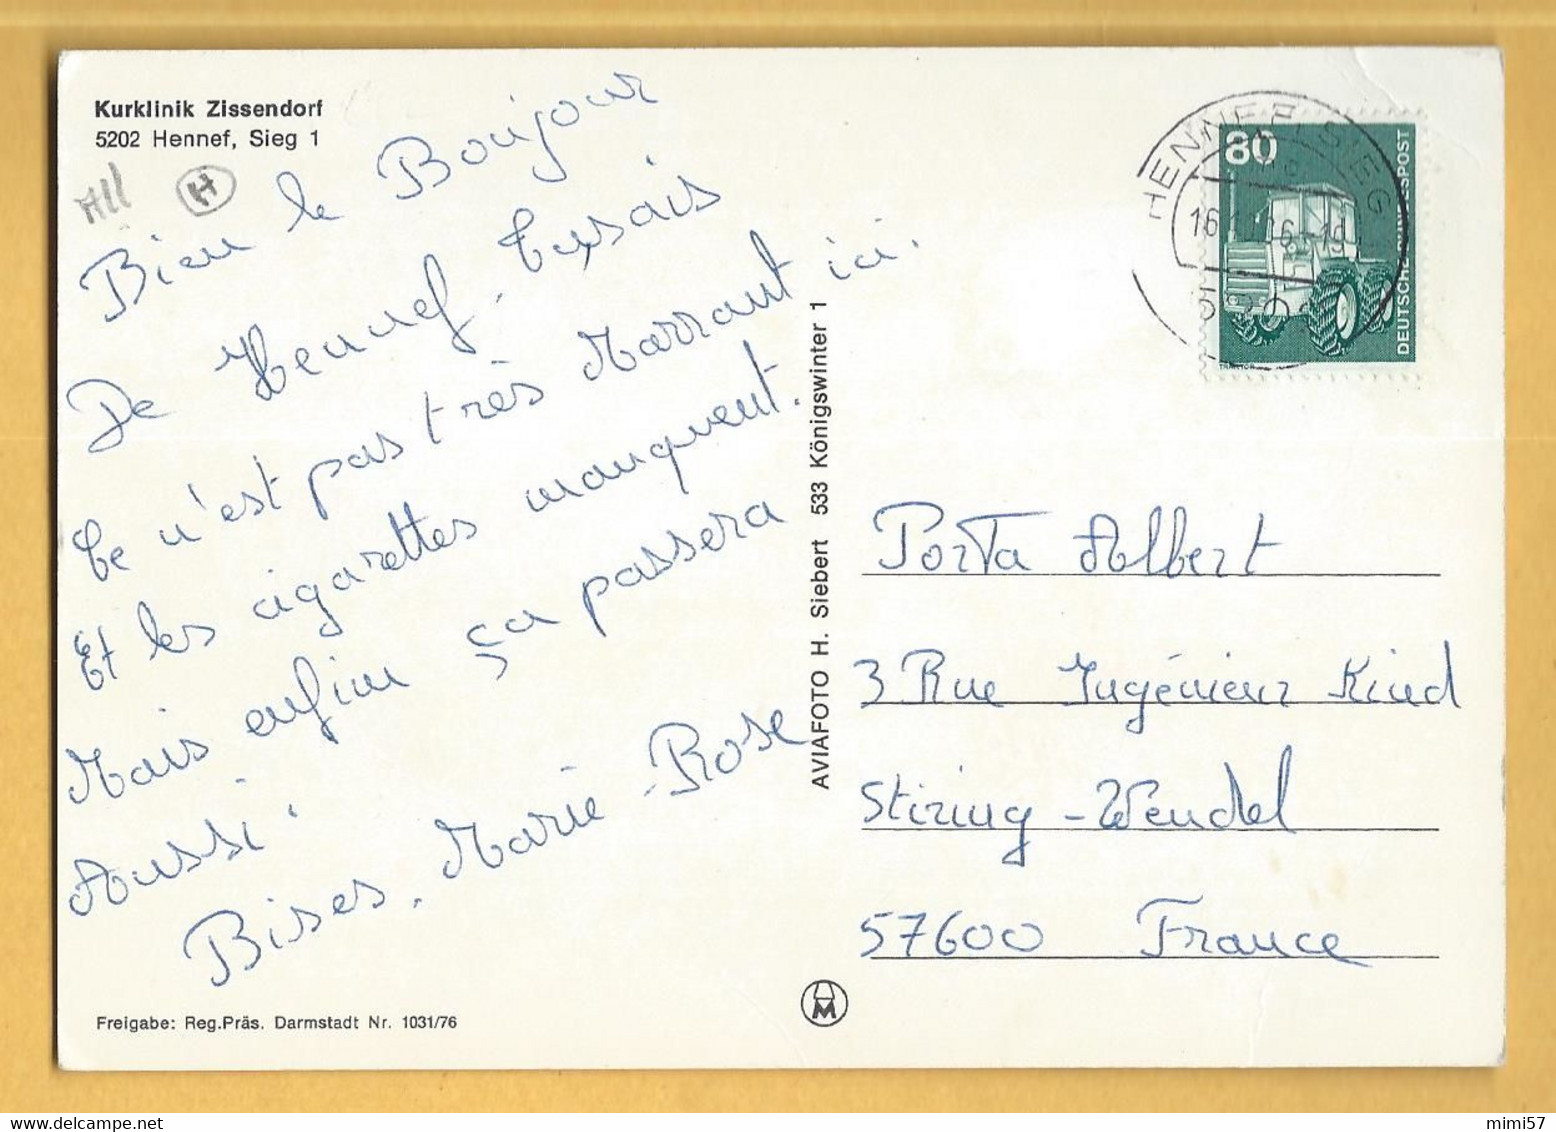 Kurklinik Zissendorf
5202 Hennef, Sieg 1
All
H
Bien le Bonjour
De Hennef, tu sais
Ce n'est pas très Marrant ici.
Et les cigarettes manquent.
Mais enfin ça passera
Aussi.
Bises. Marie-Rose
Freigabe: Reg.Präs. Darmstadt Nr. 1031/76
AVIAFOTO H. Siebert 533 Königswinter 1
M
HENNEF, SIEG
80
DEUTSCHE BUNDESPOST
TRAKTOR
Porta Albert
3 Rue Ingénieur Kind
Stiring-Wendel
57600 France
mimi57